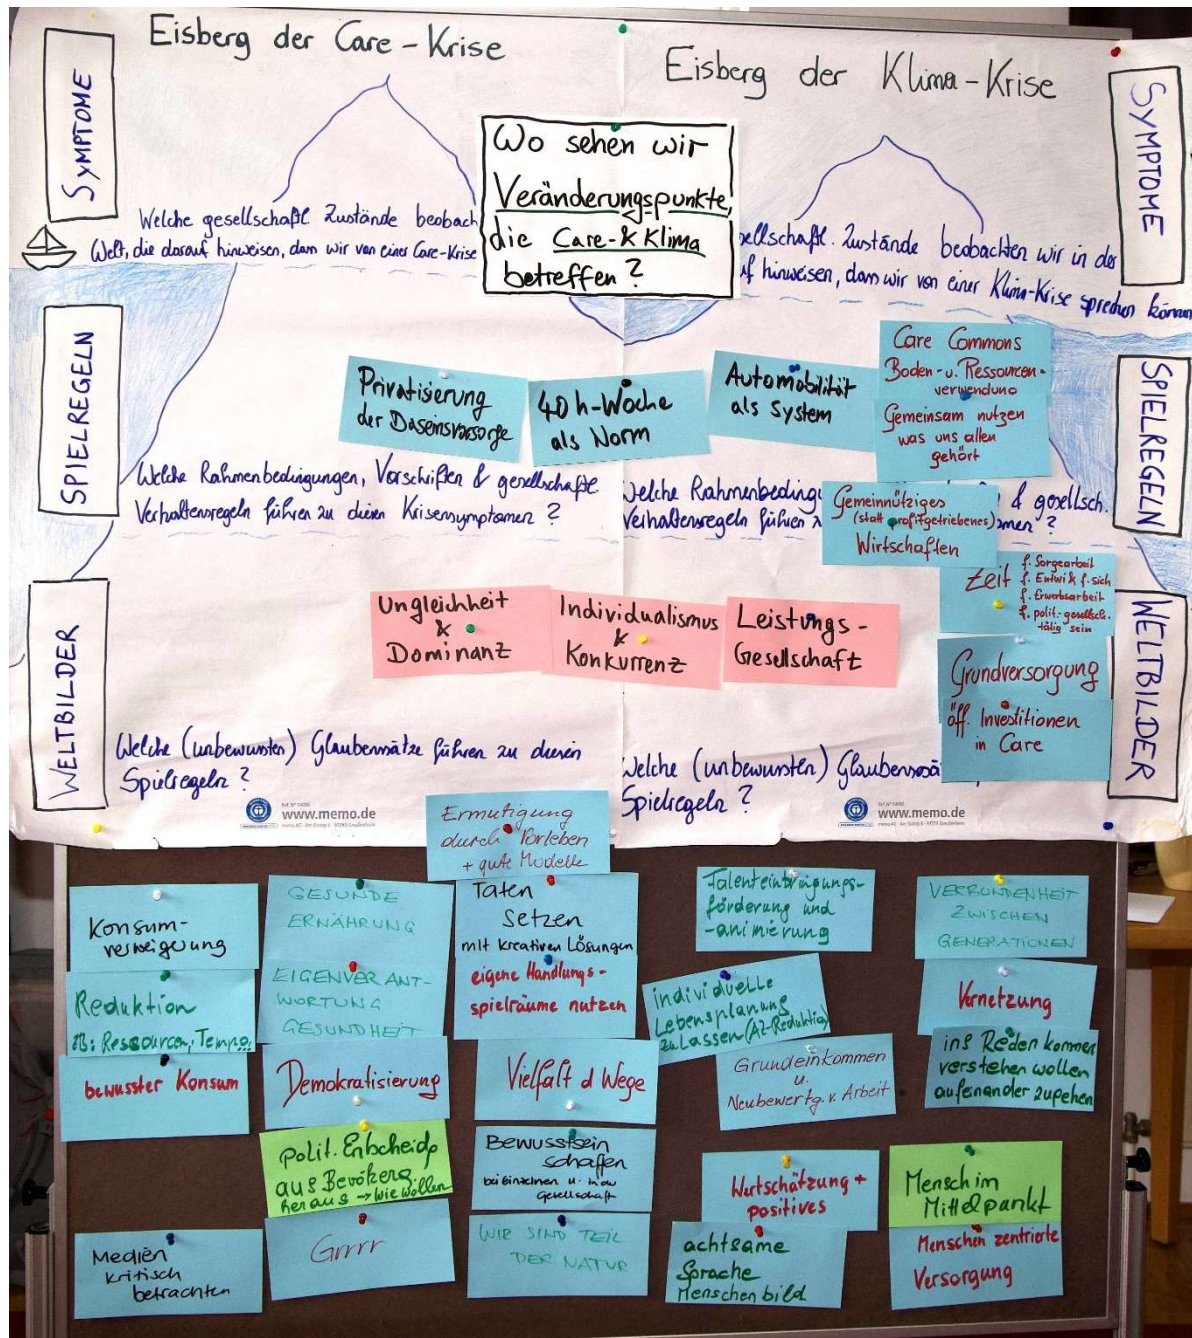 Eisberg der Care-Krise
Eisberg der Klima-Krise
SYMPTOME
SYMPTOME
Wo sehen wir
Veränderungspunkte,
die Care-& Klima
betreffen?
Welche gesellschaftl. Zustände beobach
Welt, die darauf hinweisen, dass wir von einer Care-Krise
sellschaftl. Zustände beobachten wir in der
f hinweisen, dass wir von einer Klima-Krise sprechen können
SPIELREGELN
SPIELREGELN
Privatisierung
der Daseinsvorsorge
40 h-Woche
als Norm
Automobilität
als System
Care Commons
Boden- u. Ressourcen-
verwendung
Gemeinsam nutzen
was uns allen
gehört
Welche Rahmenbedingungen, Vorschriften & gesellschaftl.
Verhaltensregeln führen zu diesen Krisensymptomen?
Welche Rahmenbedingu
& gesellsch.
Verhaltensregeln führen z
men?
Gemeinnütziges
(statt profitgetriebenes)
Wirtschaften
Zeit
f. Sorgearbeit
f. Entwi & f. sich
f. Erwerbsarbeit
f. polit.-gesellsch.
tätig sein
WELTBILDER
WELTBILDER
Ungleichheit
&
Dominanz
Individualismus
&
Konkurrenz
Leistungs-
Gesellschaft
Grundversorgung
öff. Investitionen
in Care
Welche (unbewussten) Glaubenssätze führen zu diesen
Spielregeln?
Welche (unbewussten) Glaubenssä
Spielregeln?
www.memo.de
www.memo.de
Ermutigung
durch Vorleben
+ gute Modelle
Konsum-
verweigerung
GESUNDE
ERNÄHRUNG
Taten
setzen
mit kreativen Lösungen
Talenteinbringungs-
förderung und
-animierung
VERBUNDENHEIT
ZWISCHEN
GENERATIONEN
Reduktion
zB: Ressourcen, Tempo
EIGENVERANT-
WORTUNG
GESUNDHEIT
eigene Handlungs-
spielräume nutzen
individuelle
Lebensplanung
zu Lassen (AZ-Reduktion)
Vernetzung
bewusster Konsum
Demokratisierung
Vielfalt d Wege
Grundeinkommen
u.
Neubewertg. v. Arbeit
ins Reden kommen
verstehen wollen
aufeinander zugehen
polit. Entscheidg
aus Bevölkerg.
heraus → wie wollen
Bewusstsein
schaffen
bei einzelnen u. in der
Gesellschaft
Wertschätzung +
positives
Mensch im
Mittelpunkt
Medien
kritisch
betrachten
Grrrr
WIR SIND TEIL
DER NATUR
achtsame
Sprache
Menschenbild
Menschen zentrierte
Versorgung